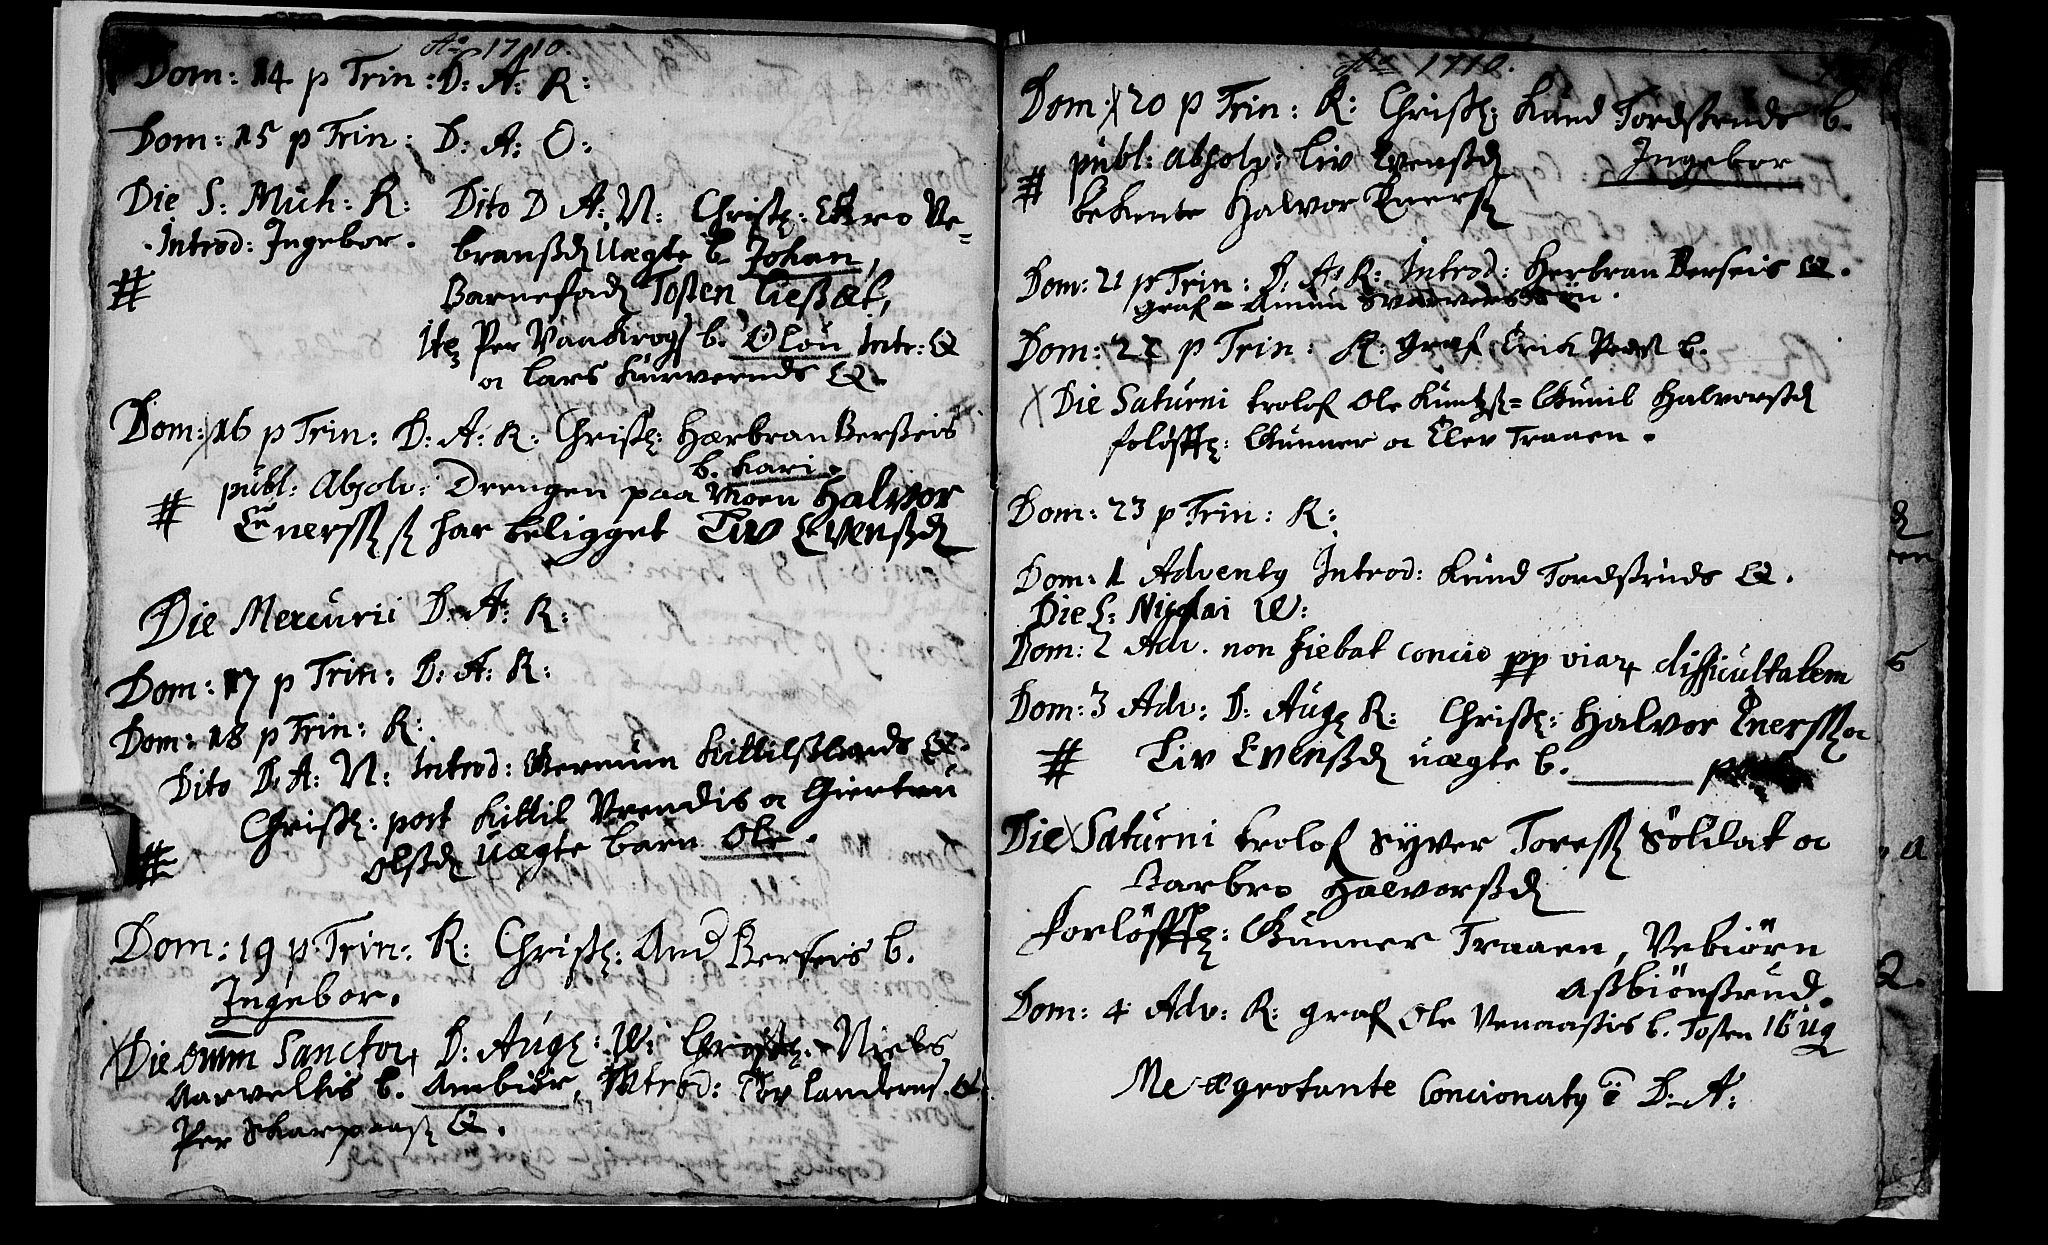 Ao 1710.
Dom: 14 p Trin: D: A: R:
Dom: 15 p Trin: D: A: O:
Die S: Mich: R: Dito D A: N: Christ: Ve=
Introd: Ingebor. bransd Uægte b. Johan,
# Barnefad Tosten
Ite Per b. Olou Intr: Q
a Lars Q.
Dom: 16 p Trin: D: A: R: Christ: Hærbran Berseis
b. Kari.
# publ: Absolv: Drengen paa Moen Halvor
Enerss har beligget Liv Evensd
Die Mercurii D. A: R:
Dom: 17 p Trin: D: A: R:
Dom: 18 p Trin: R:
Dito D. A: N: Introd: Q.
Christ: post Kittil a Giertru
# Olsd Uægte barn Ole.
Dom: 19 p Trin: R: Christ: And Berseis b.
Ingebor.
Die omm Sanctor D: Aug: W: Christ: Niels
b. Ambiør, Introd: Q
Per Q.
Ao 1710.
Dom: 20 p Trin: R: Christ: Knud Tordsruds b.
publ: absolv: Liv Evensd Ingebor
# bekente Halvor Enerss
Dom: 21 p Trin: D. A: R: Introd: Herbran Berseis Q.
graf = Amun
Dom: 22 p Trin: R: graf Erick b.
Die Saturni trolof Ole = Gunil Halvorsd
Gunner a Elev Traaen.
Dom: 23 p Trin: R:
Dom: 1 Advent Introd: Knud Tordsruds Q.
Die S: Nicolai W:
Dom: 2 Adv. non fiebat concio pp viar difficultatem
Dom: 3 Adv: D: Aug R: Christ: Halvor Enerss a
# Liv Evensd uægte b.
Die Saturni trolof Syver Toress Soldat a
Barbro Halvorsd
Gunner Traaen, Vebiørn
Asbiønsrud.
Dom: 4 Adv: R: graf Ole b. Tosten 16 ug
Me ægrotante Concionat D. A: